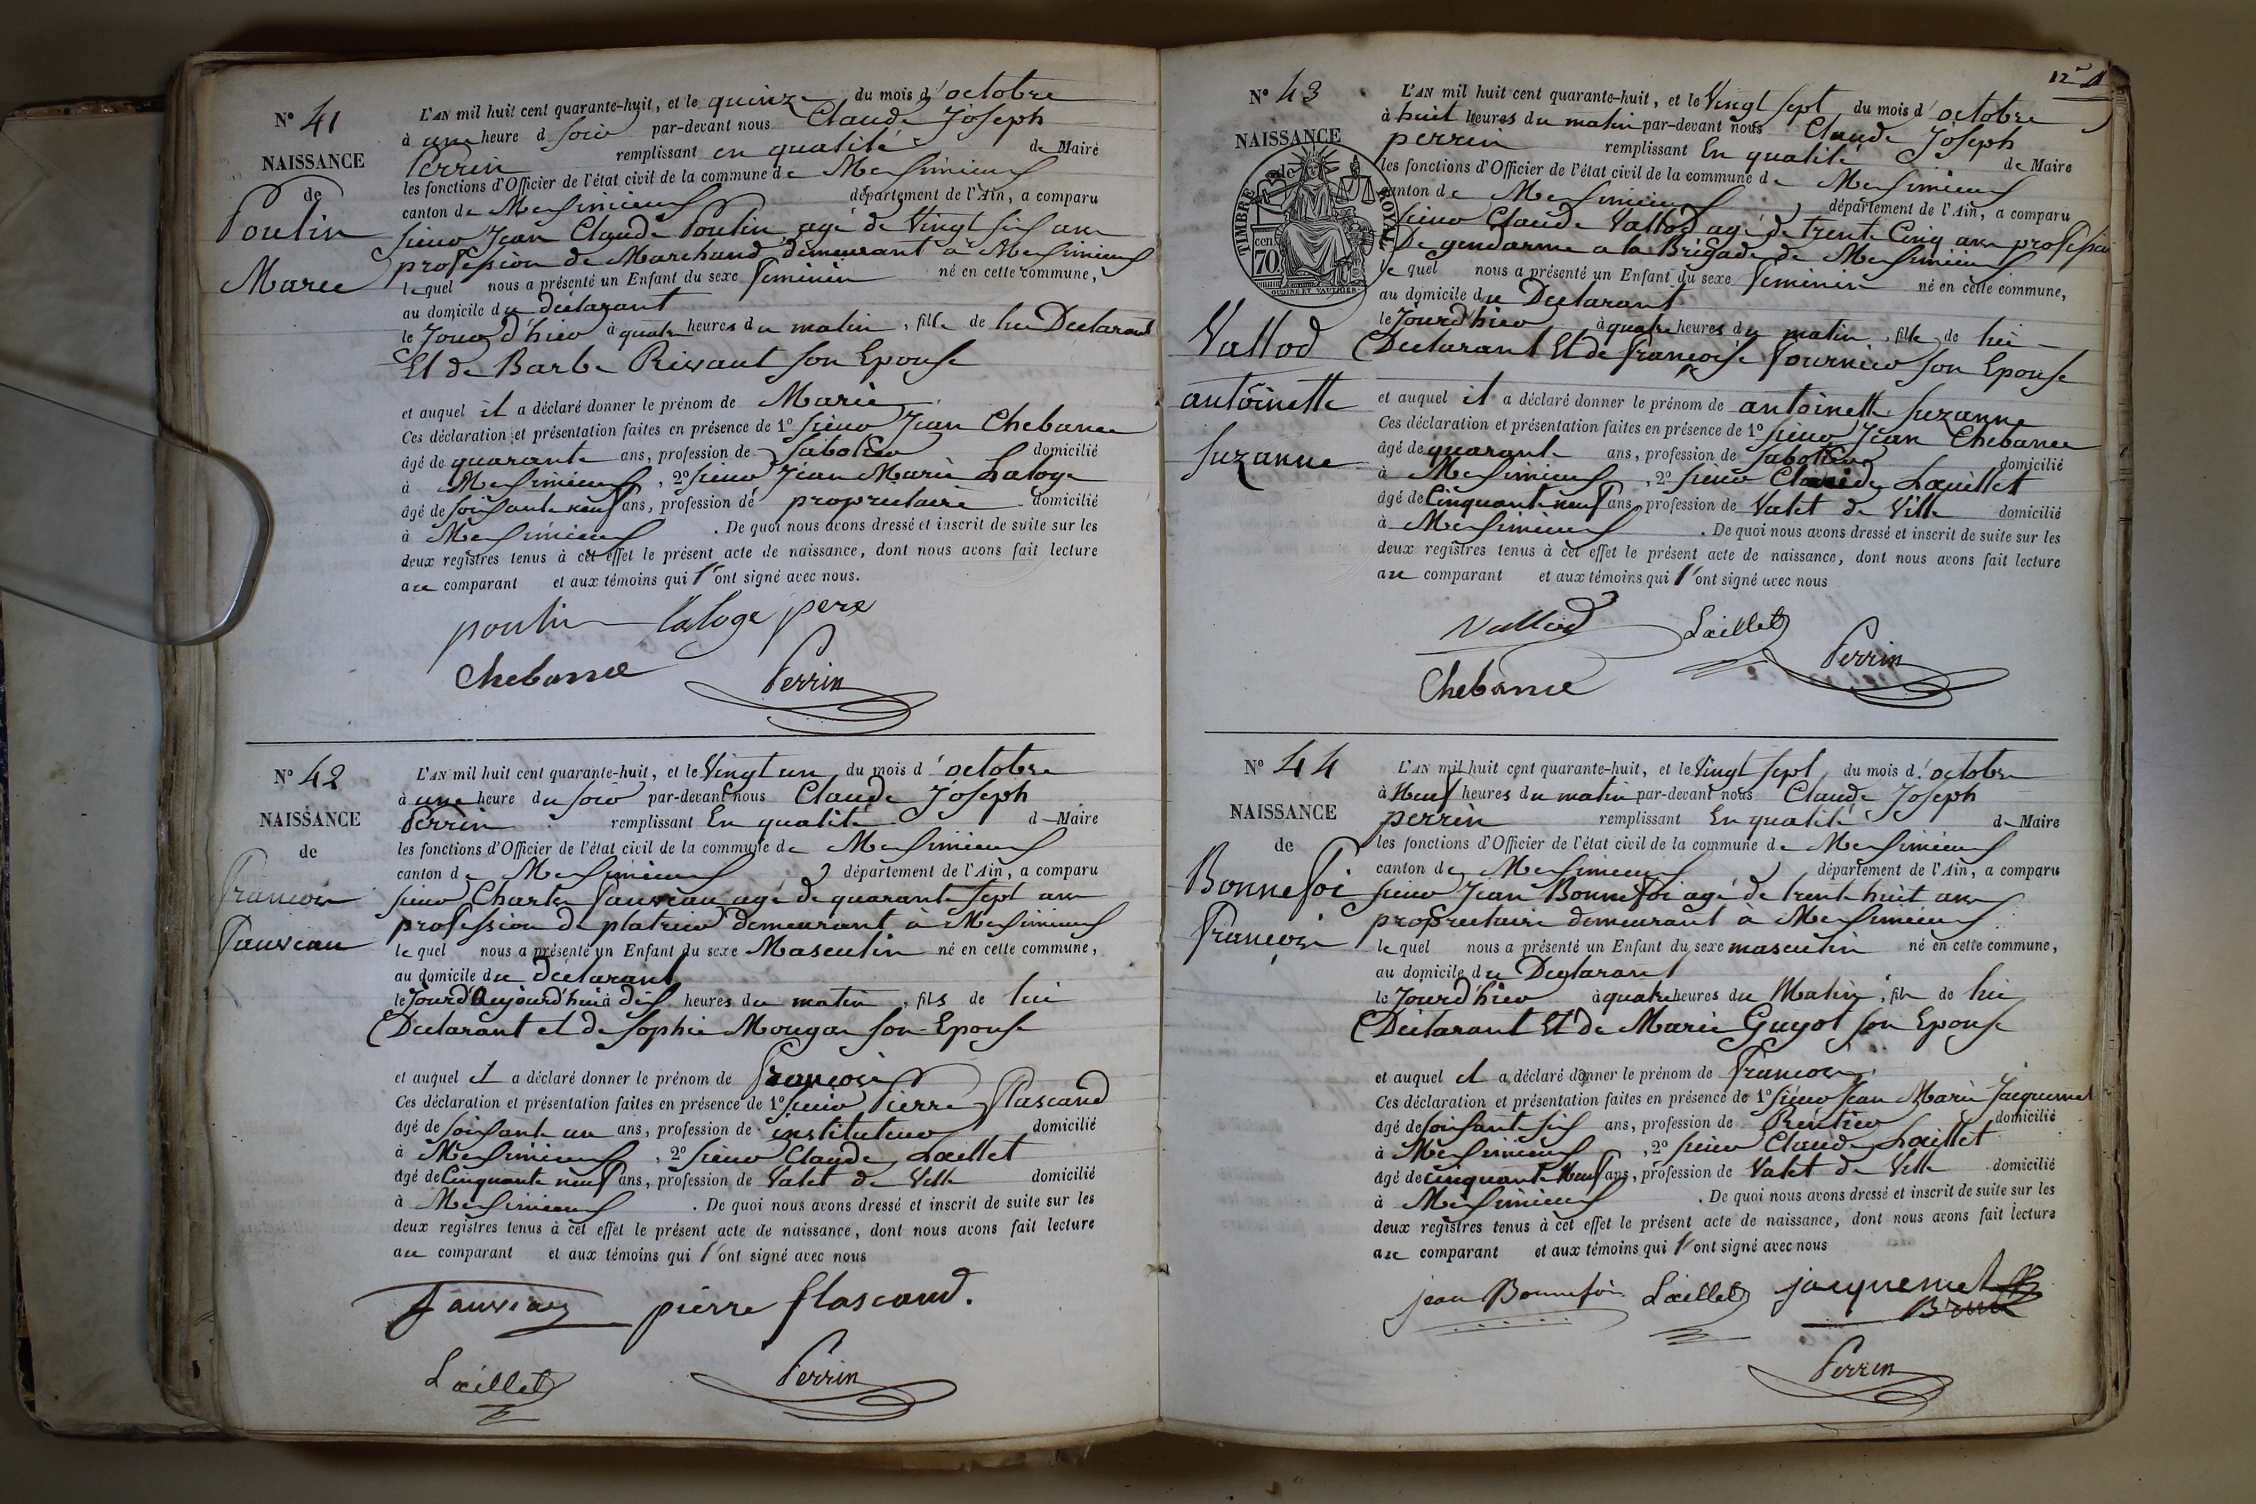 N° 41
NAISSANCE
de
Poulin
Marie
L'AN mil huit cent quarante-huit, et le quinze du mois d'octobre
à une heure d soir par-devant nous Claude Joseph
Perrin remplissant en qualité de Maire
les fonctions d'Officier de l'état civil de la commune de Meximieux
canton de Meximieux département de l'Ain, a comparu
sieur Jean Claude Poulin agé de Vingt six ans
profession de Marchand demeurant à Meximieux
lequel nous a présenté un Enfant du sexe feminin né en cette commune,
au domicile du déclarant
le Jour d'hier à quatre heures du matin, fille de lui Déclarant
Et de Barbe Rivaut son Epouse
et auquel il a déclaré donner le prénom de Marie
Ces déclaration et présentation faites en présence de 1° sieur Jean Chebance
âgé de quarante ans, profession de Sabotier domicilié
à Meximieux, 2° sieur Jean Marie Laloge
âgé de soixante neuf ans, profession de propriétaire domicilié
à Meximieux. De quoi nous avons dressé et inscrit de suite sur les
deux registres tenus à cet effet le présent acte de naissance, dont nous avons fait lecture
au comparant et aux témoins qui l'ont signé avec nous.
poulin laloge pere
Chebance Perrin
N° 42
NAISSANCE
de
François
Fauveau
L'AN mil huit cent quarante-huit, et le Vingt un du mois d'octobre
à une heure du soir par-devant nous Claude Joseph
Perrin remplissant En qualité d Maire
les fonctions d'Officier de l'état civil de la commune de Meximieux
canton de Meximieux département de l'Ain, a comparu
sieur Charles Fauveau agé de quarante sept ans
profession de platrier demeurant à Meximieux
lequel nous a présenté un Enfant du sexe Masculin né en cette commune,
au domicile du déclarant
le Jourd'Aujourd'hui à dix heures du matin, fils de lui
Déclarant et de Sophie Mougar son Epouse
et auquel il a déclaré donner le prénom de François
Ces déclaration et présentation faites en présence de 1° sieur Pierre Flascand
âgé de soixante un ans, profession de instituteur domicilié
à Meximieux, 2° sieur Claude Laillet
âgé de Cinquante neuf ans, profession de Valet de Ville domicilié
à Meximieux. De quoi nous avons dressé et inscrit de suite sur les
deux registres tenus à cet effet le présent acte de naissance, dont nous avons fait lecture
au comparant et aux témoins qui l'ont signé avec nous
Fauveau pierre flascand.
Laillet Perrin
12e
N° 43
NAISSANCE
de
TIMBRE ROYAL
cen
70
OUDINE ET VAUTHIER
Vallod
antoinette
Suzanne
L'AN mil huit cent quarante-huit, et le Vingt sept du mois d'octobre
à huit heures du matin par-devant nous Claude Joseph
perrin remplissant En qualité de Maire
les fonctions d'Officier de l'état civil de la commune de Meximieux
canton de Meximieux, département de l'Ain, a comparu
sieur Claude Vallod agé de trente Cinq ans profession
De gendarme a la Brigade de Meximieux
le quel nous a présenté un Enfant du sexe feminin né en cette commune,
au domicile du Déclarant
le Jourd'hier à quatre heures du matin, fille de lui
Déclarant Et de Françoise Fournier son Epouse
et auquel il a déclaré donner le prénom de antoinette Suzanne
Ces déclaration et présentation faites en présence de 1° sieur Jean Chebance
âgé de quarante ans, profession de Sabotier domicilié
à Meximieux, 2° sieur Claude Laillet
âgé de Cinquante neuf ans, profession de Valet de Ville domicilié
à Meximieux. De quoi nous avons dressé et inscrit de suite sur les
deux registres tenus à cet effet le présent acte de naissance, dont nous avons fait lecture
au comparant et aux témoins qui l'ont signé avec nous
Vallod Laillet Perrin
Chebance
N° 44
NAISSANCE
de
Bonnefoi
François
L'AN mil huit cent quarante-huit, et le Vingt sept du mois d'octobre
à Neuf heures du matin par-devant nous Claude Joseph
perrin remplissant En qualité de Maire
les fonctions d'Officier de l'état civil de la commune de Meximieux
canton de Meximieux département de l'Ain, a comparu
sieur Jean Bonnefoi agé de trente huit ans
propriétaire demeurant à Meximieux
le quel nous a présenté un Enfant du sexe masculin né en cette commune,
au domicile du Déclarant
le Jourd'hier à quatre heures du Matin, fils de lui
Déclarant Et de Marie Guyot son Epouse
et auquel il a déclaré donner le prénom de François
Ces déclaration et présentation faites en présence de 1° sieur Jean Marie Jacquemet
âgé de soixante six ans, profession de Rentier domicilié
à Meximieux, 2° sieur Claude Laillet
âgé de cinquante Neuf ans, profession de Valet de Ville domicilié
à Meximieux. De quoi nous avons dressé et inscrit de suite sur les
deux registres tenus à cet effet le présent acte de naissance, dont nous avons fait lecture
au comparant et aux témoins qui l'ont signé avec nous
jean Bonnefoi Laillet jacquemet
Perrin